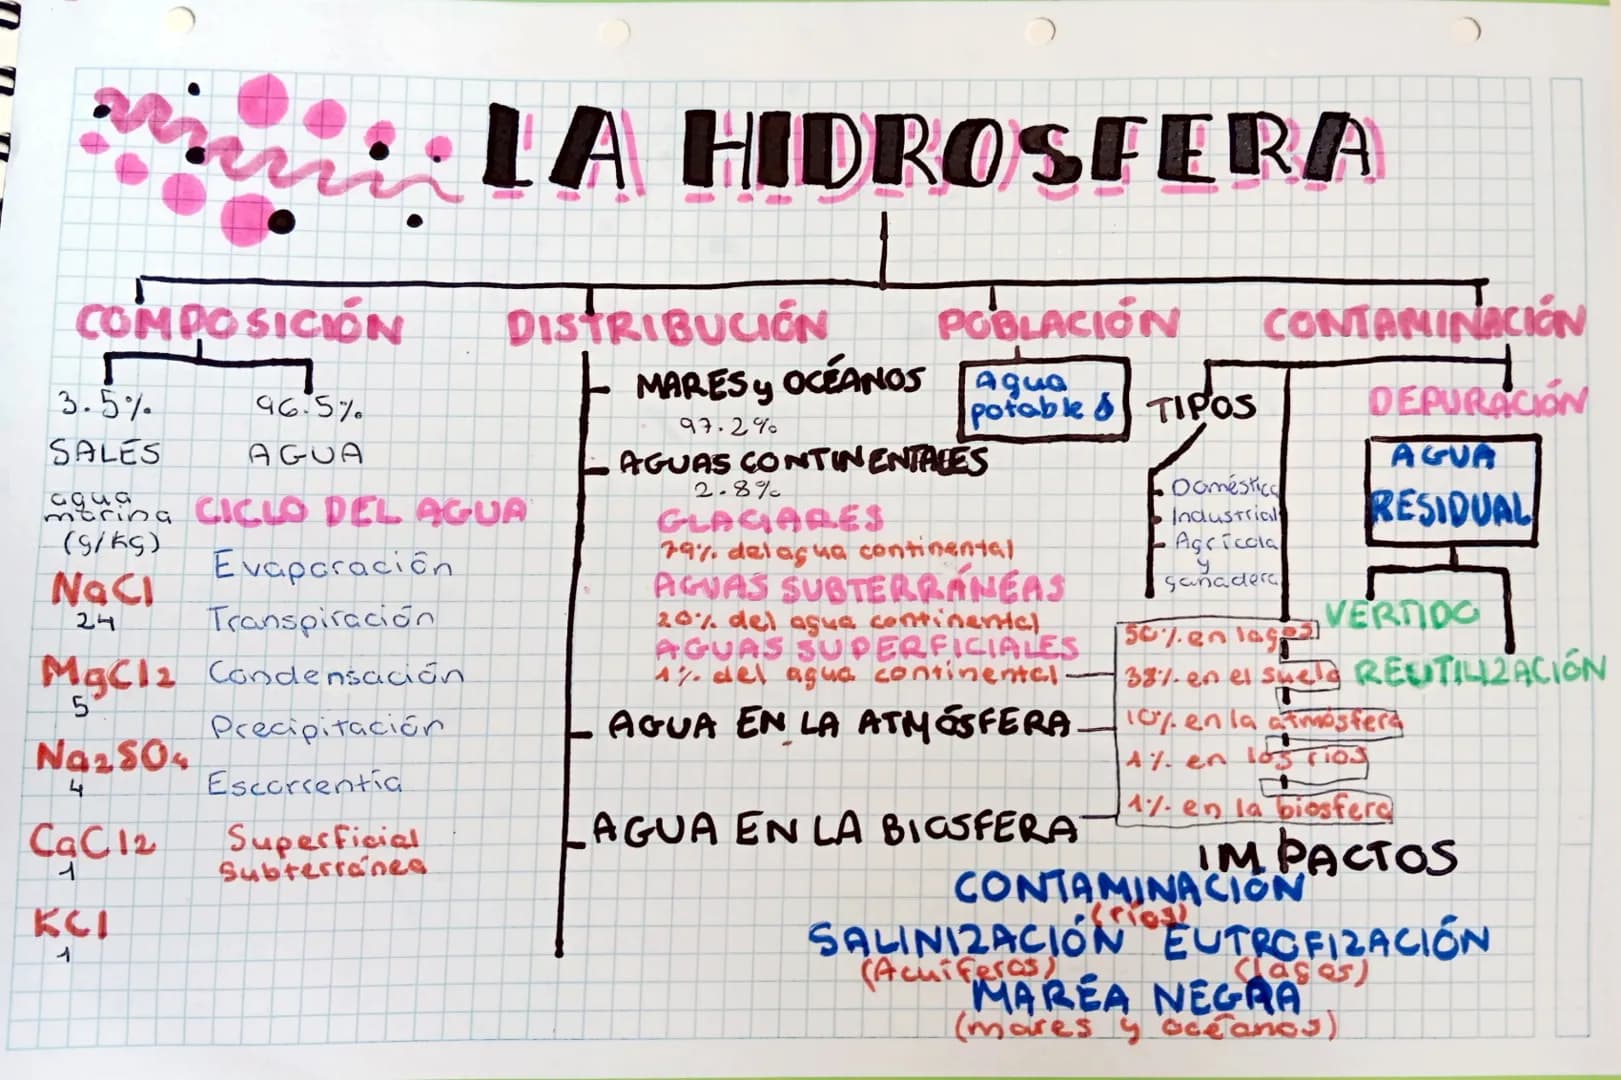 LA HIDROSFERA
COMPOSICIÓN
3.5% 96.5%
SALES AGUA
agua
marina
(g/kg)
NaCl
24
MgCl2
5
Na2SO4
4
CaCl2
1
KCl
1
CICLO DEL AGUA
Evaporación
Transpiración
Condensación
Precipitación
Escorrentía
Superficial
Subterránea
DISTRIBUCIÓN
MARES y OCÉANOS
97.2%
AGUAS CONTINENTALES
2.8%
GLACIARES
79% del agua continental
AGUAS SUBTERRÁNEAS
20% del agua continental
AGUAS SUPERFICIALES
1% del agua continental
AGUA EN LA ATMÓSFERA
AGUA EN LA BIOSFERA
50% en lagos
38% en el suelo
10% en la atmósfera
1% en los rios
1% en la biosfera
POBLACIÓN
Agua
potable
CONTAMINACIÓN
TIPOS
Doméstica
Industrial
Agrícola
y
ganadera
DEPURACIÓN
AGUA
RESIDUAL
VERTIDO
REUTILIZACIÓN
IMPACTOS
CONTAMINACIÓN
(ríos)
SALINIZACIÓN EUTROFIZACIÓN
(Acuíferos) (lagos)
MARÉA NEGRA
(mares y océanos)